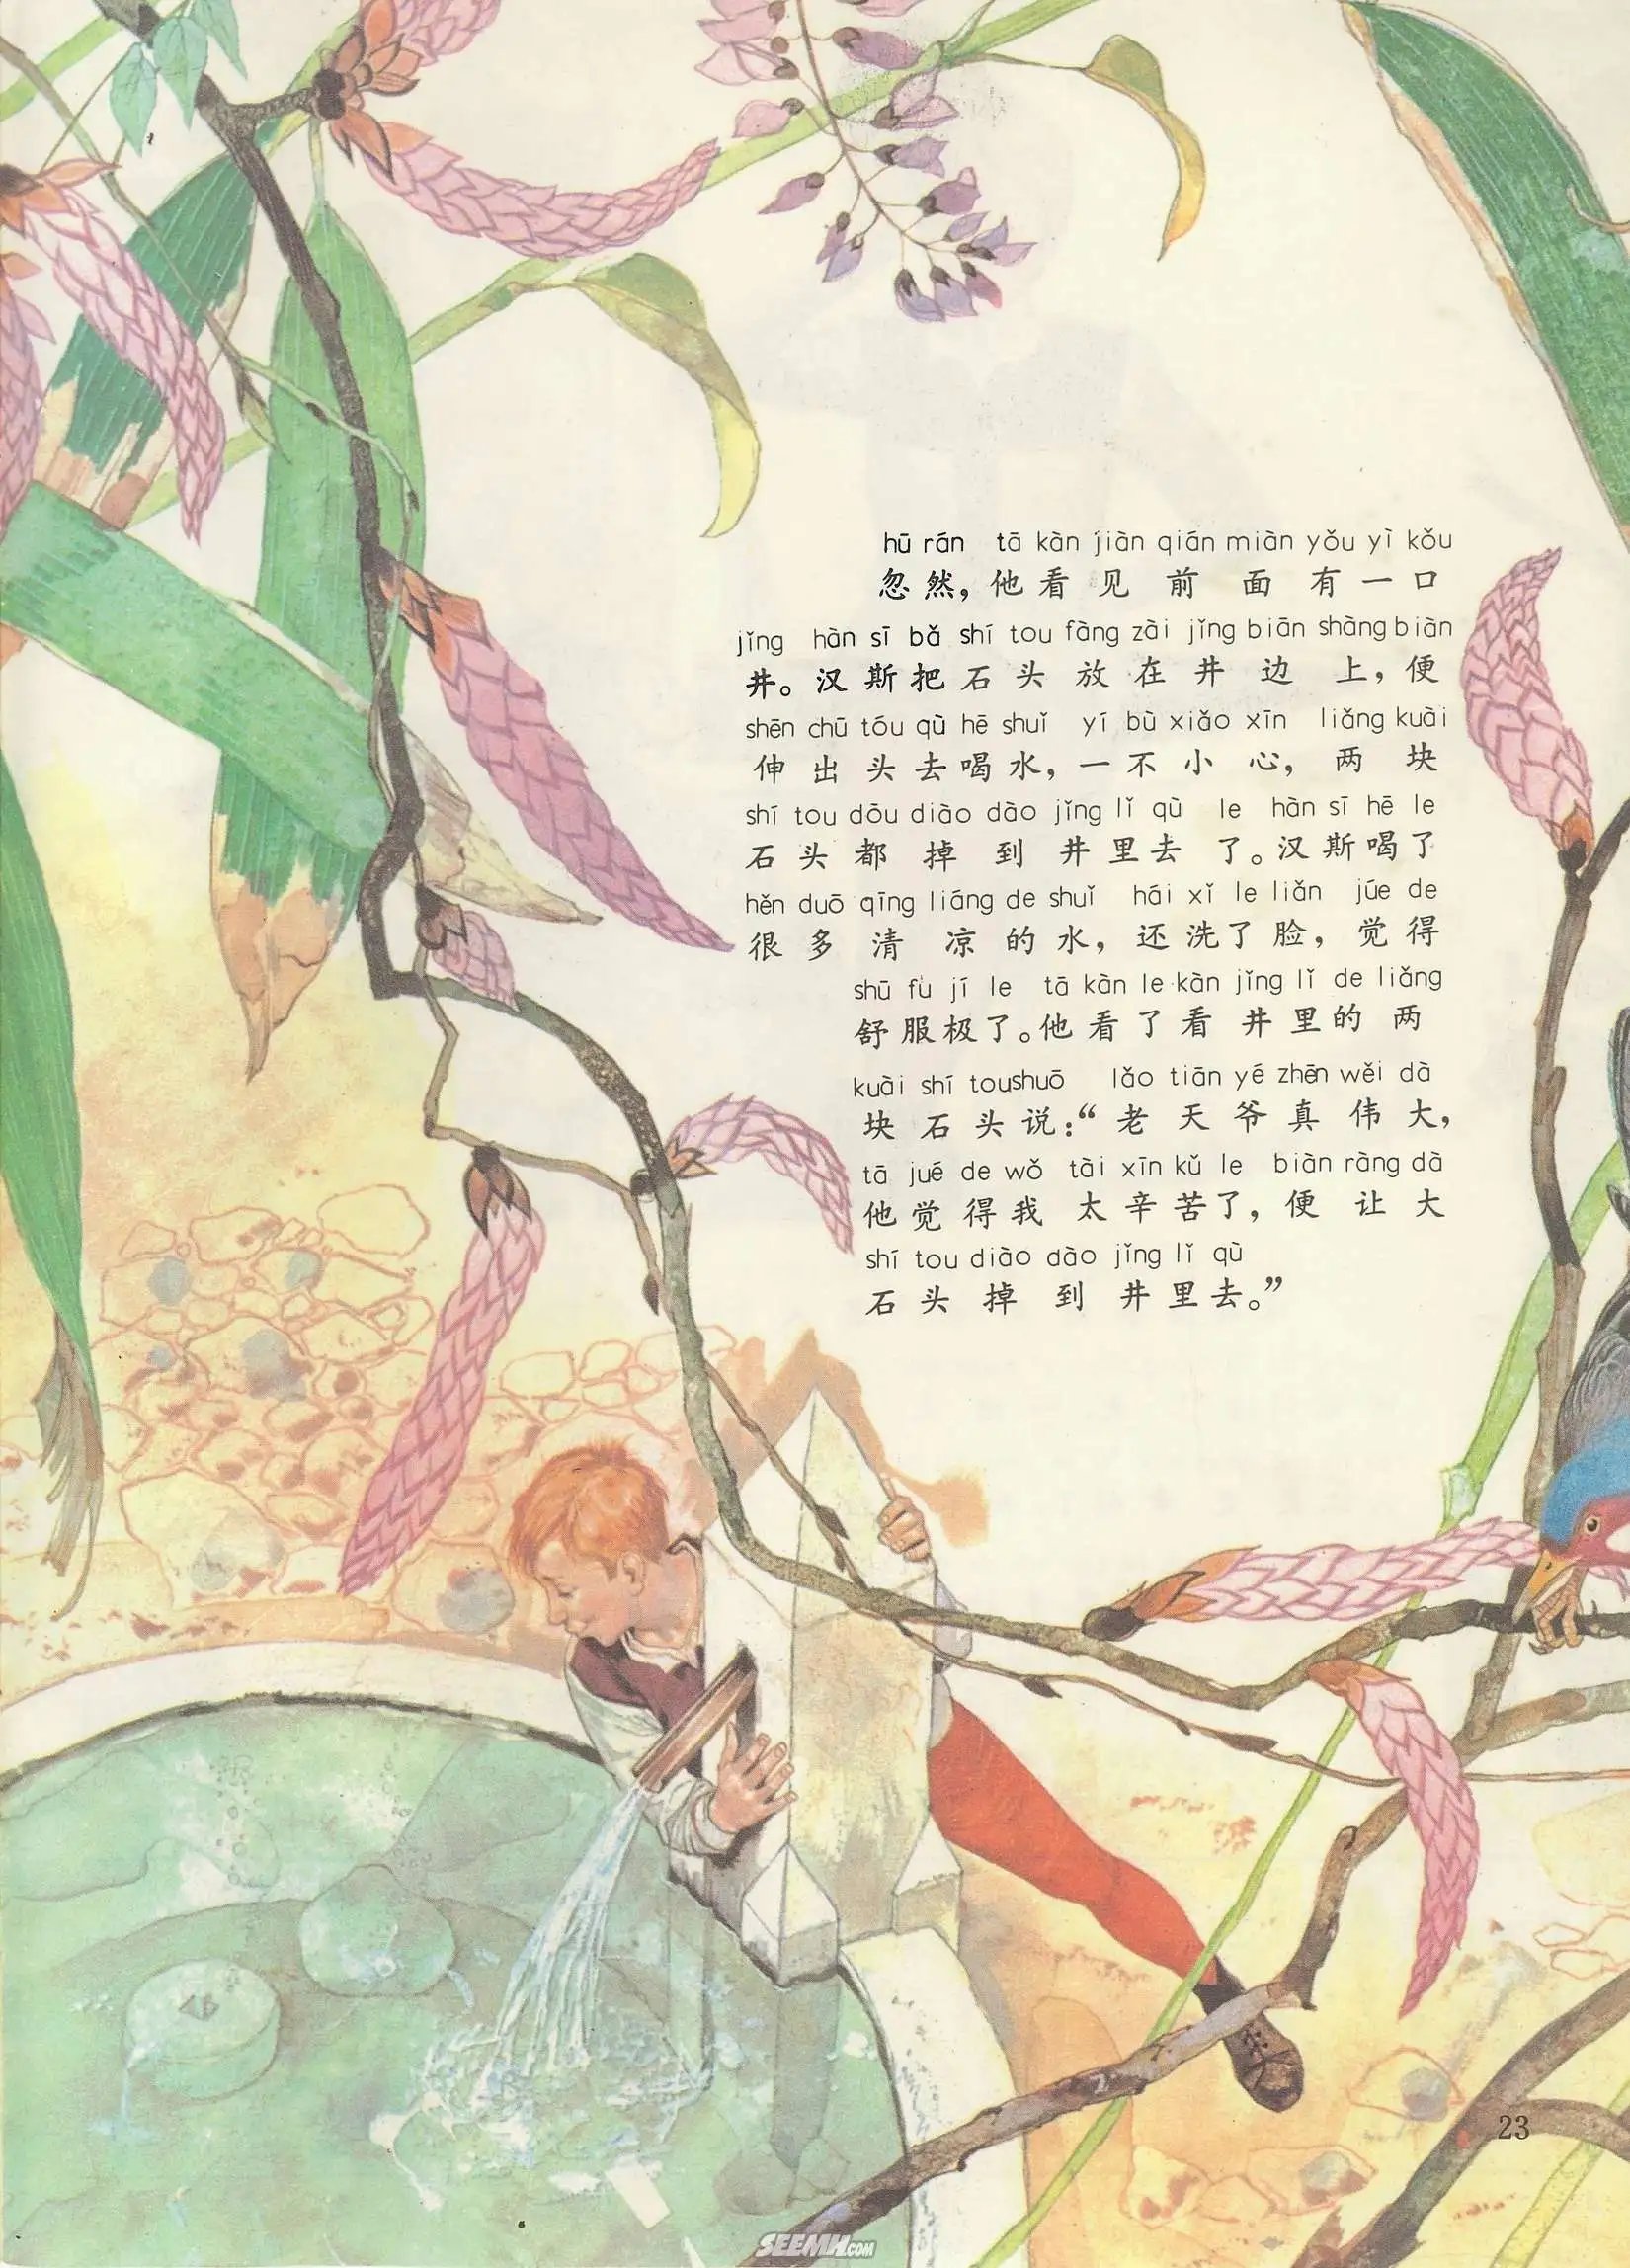 hū rán tā kàn jiàn qián miàn yǒu yì kǒu
忽然，他看见前面有一口
jǐng hàn sī bǎ shí tou fàng zài jǐng biān shàng biàn
井。汉斯把石头放在井边上，便
shēn chū tóu qù hē shuǐ yí bù xiǎo xīn liǎng kuài
伸出头去喝水，一不小心，两块
shí tou dōu diào dào jǐng lǐ qù le hàn sī hē le
石头都掉到井里去了。汉斯喝了
hěn duō qīng liáng de shuǐ hái xǐ le liǎn júe de
很多清凉的水，还洗了脸，觉得
shū fu jí le tā kàn le kàn jǐng lǐ de liǎng
舒服极了。他看了看井里的两
kuài shí toushuō lǎo tiān yé zhēn wěi dà
块石头说：“老天爷真伟大，
tā jué de wǒ tài xīn kǔ le biàn ràng dà
他觉得我太辛苦了，便让大
shí tou diào dào jǐng lǐ qù
石头掉到井里去。”
23
SEEMH.COM